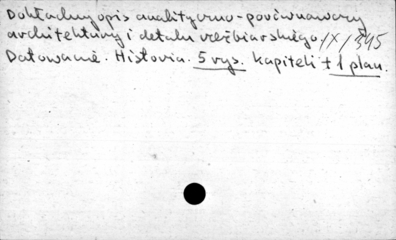 Dokładny opis analityczno-porównawczy
architektury i detalu rzeźbiarskiego /X/ 345
Datowanie. Historia. 5 rys. kapiteli + 1 plan.